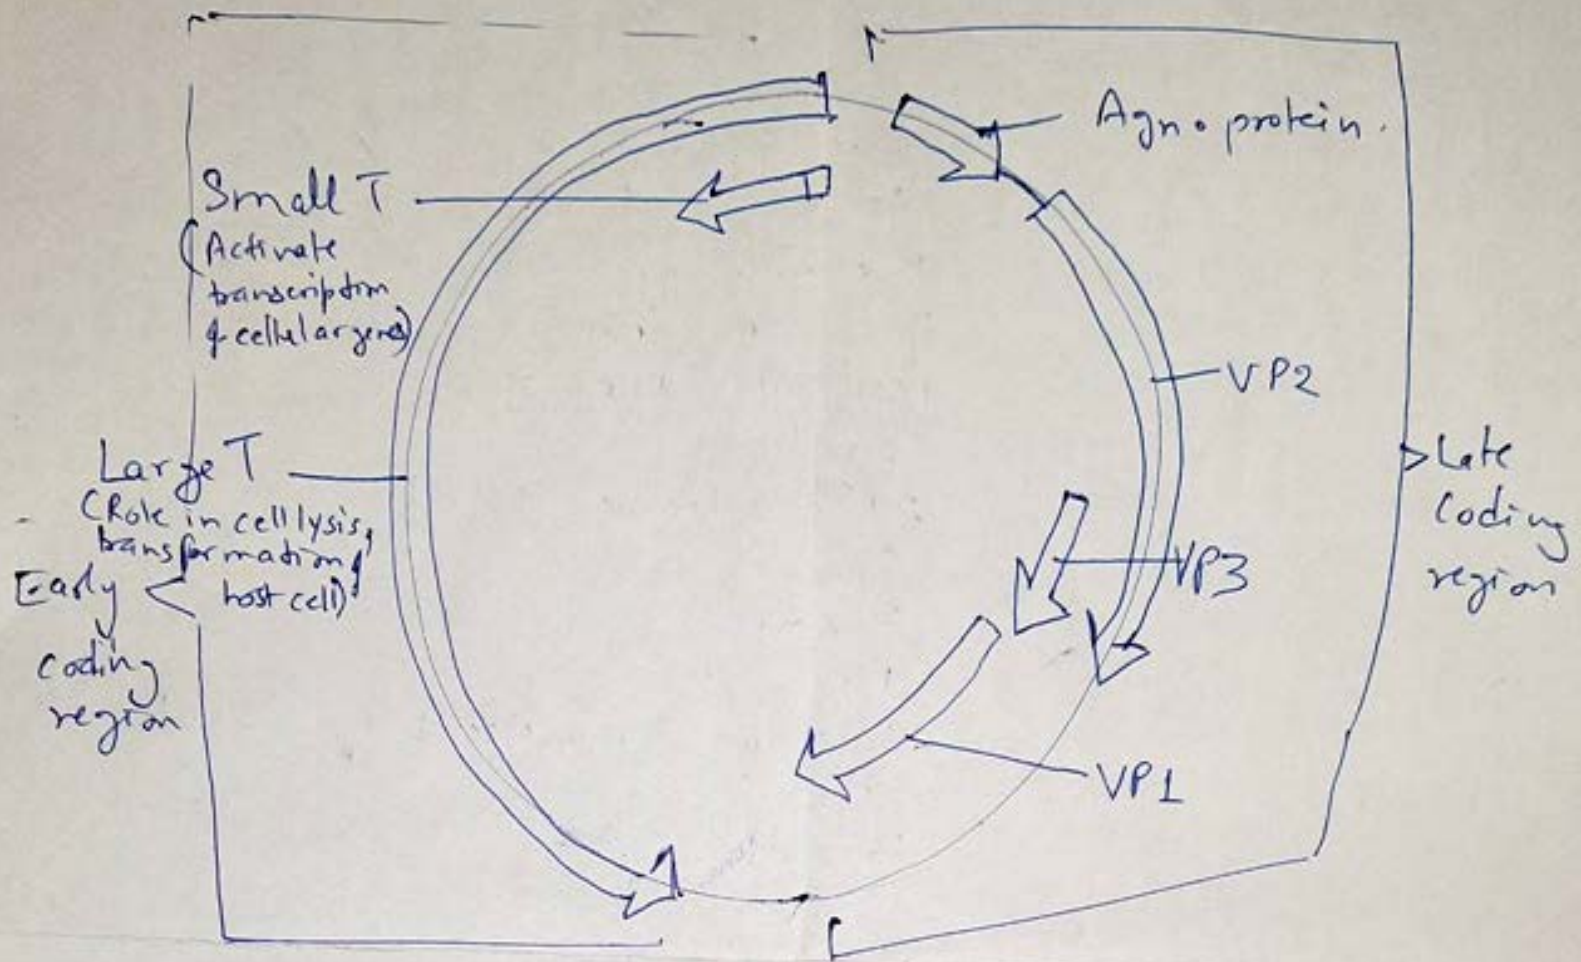 Agnoprotein.
Small T
(Activate
transcription
of cellular genes)
VP2
Large T
(Role in cell lysis,
transformation of
host cell)
Early
coding
region
Late
Coding
region
VP3
VP1